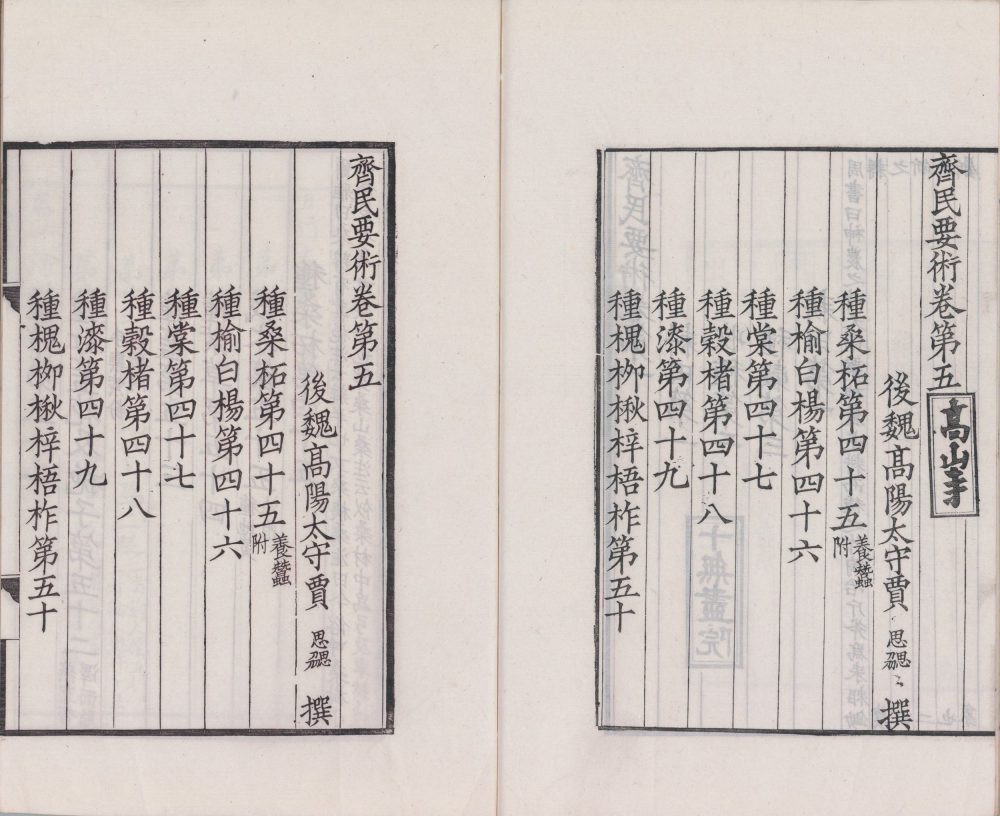 齊民要術卷第五
高山寺
後魏髙陽太守賈思勰撰
種桑柘第四十五養蠶附
種榆白楊第四十六
種棠第四十七
種榖楮第四十八
種漆第四十九
種槐栁楸梓梧柞第五十
齊民要術卷第五
後魏髙陽太守賈思勰撰
種桑柘第四十五養蠶附
種榆白楊第四十六
種棠第四十七
種榖楮第四十八
種漆第四十九
種槐栁楸梓梧柞第五十